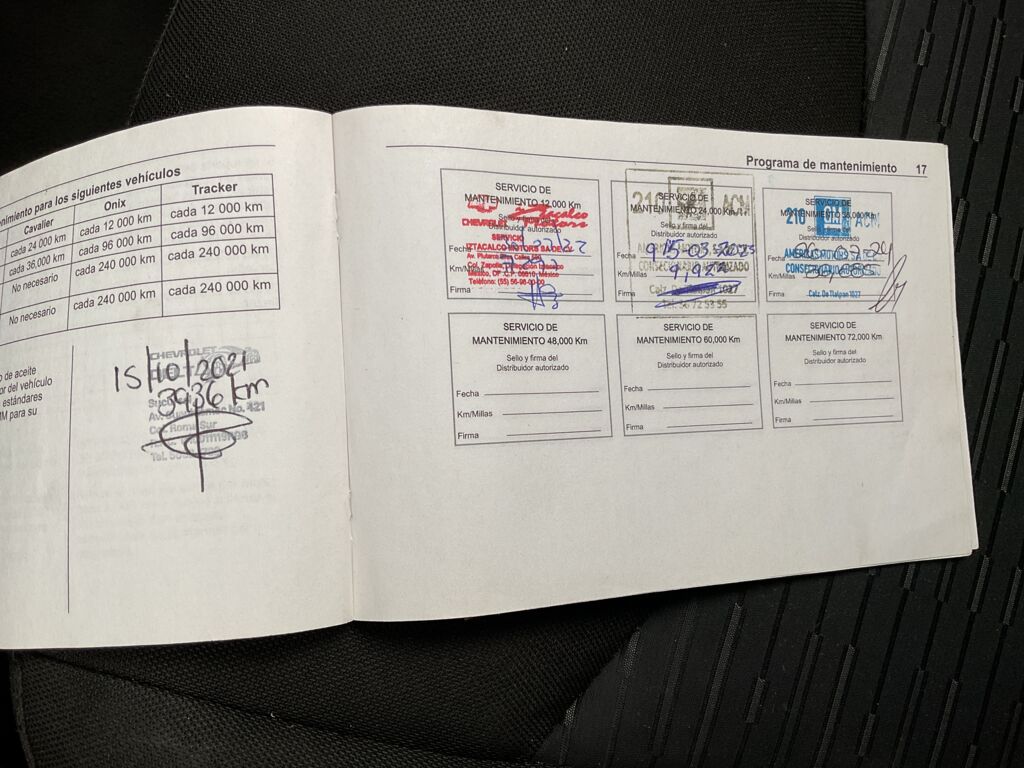 nimiento para los siguientes vehículos
Cavalier Onix Tracker
cada 24 000 km cada 12 000 km cada 12 000 km
cada 36,000 km cada 96 000 km cada 96 000 km
No necesario cada 240 000 km cada 240 000 km
No necesario cada 240 000 km cada 240 000 km
o de aceite
or del vehículo
estándares
M para su
CHEVROLET
15/10/2021
3936 km
No. 421
Roma Sur
Tel.
Programa de mantenimiento 17
SERVICIO DE
MANTENIMIENTO 12,000 Km
CHEVROLET
Sello y firma del
Distribuidor autorizado
SERVICIO
Fecha
IZTACALCO MOTORS SA DE CV
Av. Plutarco
Col.
Km/Millas
México, DF
Teléfono: (55) 56-98-00-00
Firma
SERVICIO DE
210 ACM
MANTENIMIENTO 24,000 Km
Sello y firma del
Distribuidor autorizado
Fecha
15-03-2023
Km/Millas
9,922
Firma
Calz. De 1027
72 53 55
SERVICIO DE
210 ACM
MANTENIMIENTO Km
Sello y firma del
Distribuidor autorizado
Fecha
AMERICAS MOTORS
Km/Millas
Firma
Calz. De Tlalpan 1027
SERVICIO DE
MANTENIMIENTO 48,000 Km
Sello y firma del
Distribuidor autorizado
Fecha
Km/Millas
Firma
SERVICIO DE
MANTENIMIENTO 60,000 Km
Sello y firma del
Distribuidor autorizado
Fecha
Km/Millas
Firma
SERVICIO DE
MANTENIMIENTO 72,000 Km
Sello y firma del
Distribuidor autorizado
Fecha
Km/Millas
Firma